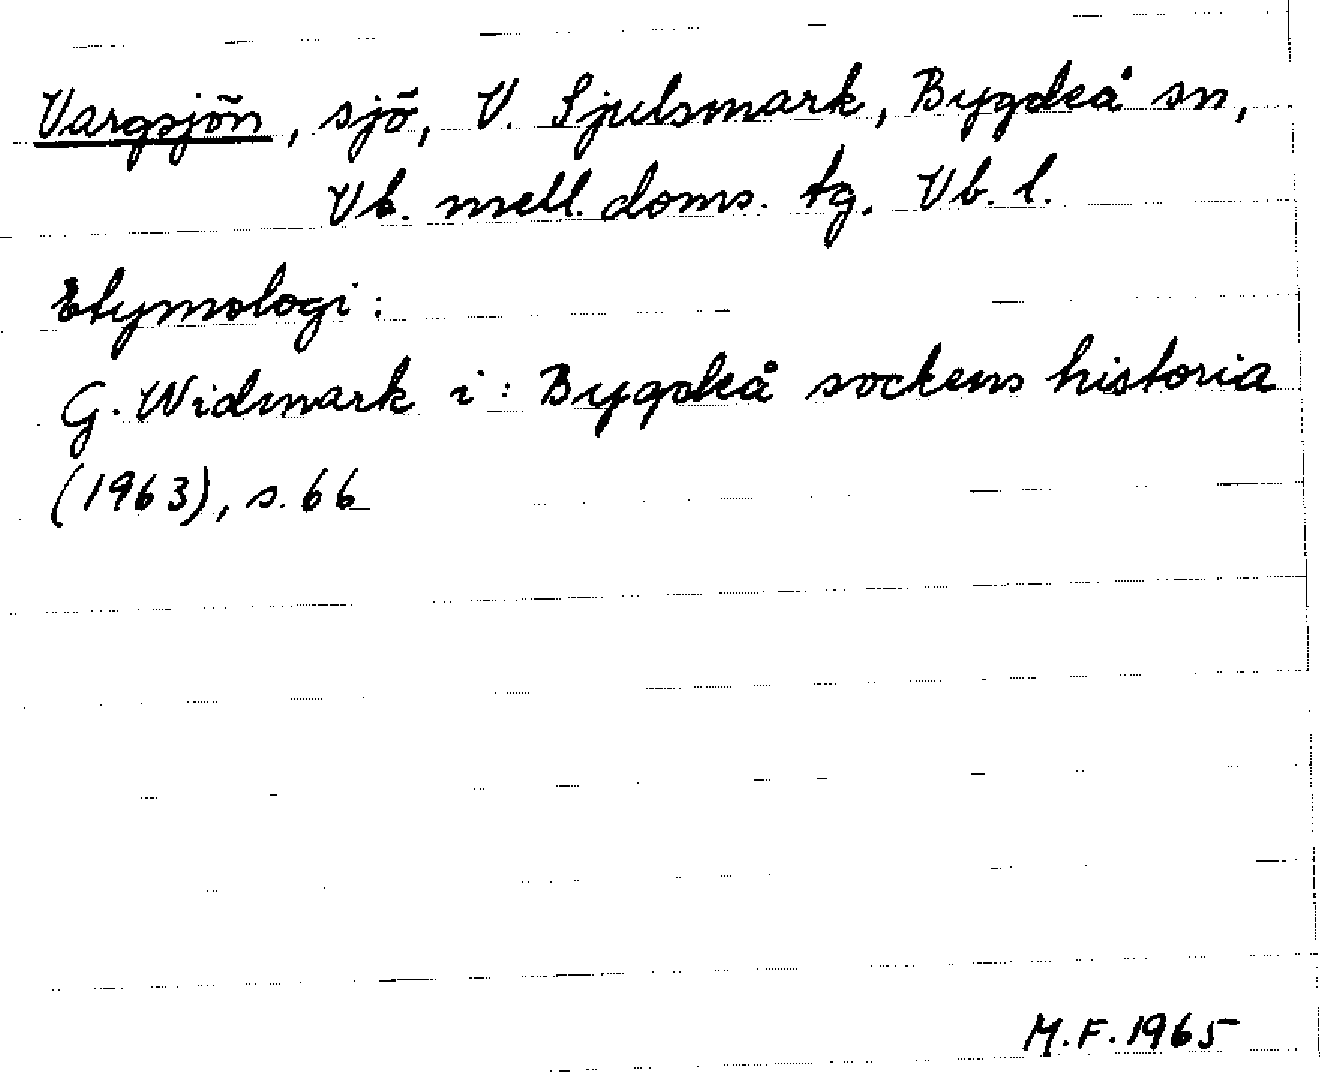 Vargsjön, sjö, V. Sjulsmark, Bygdeå sn,
Vb. mell. doms. tg. Vb. l.
Etymologi:
G. Widmark i: Bygdeå sockens historia
(1963), s. 66
M.F. 1965